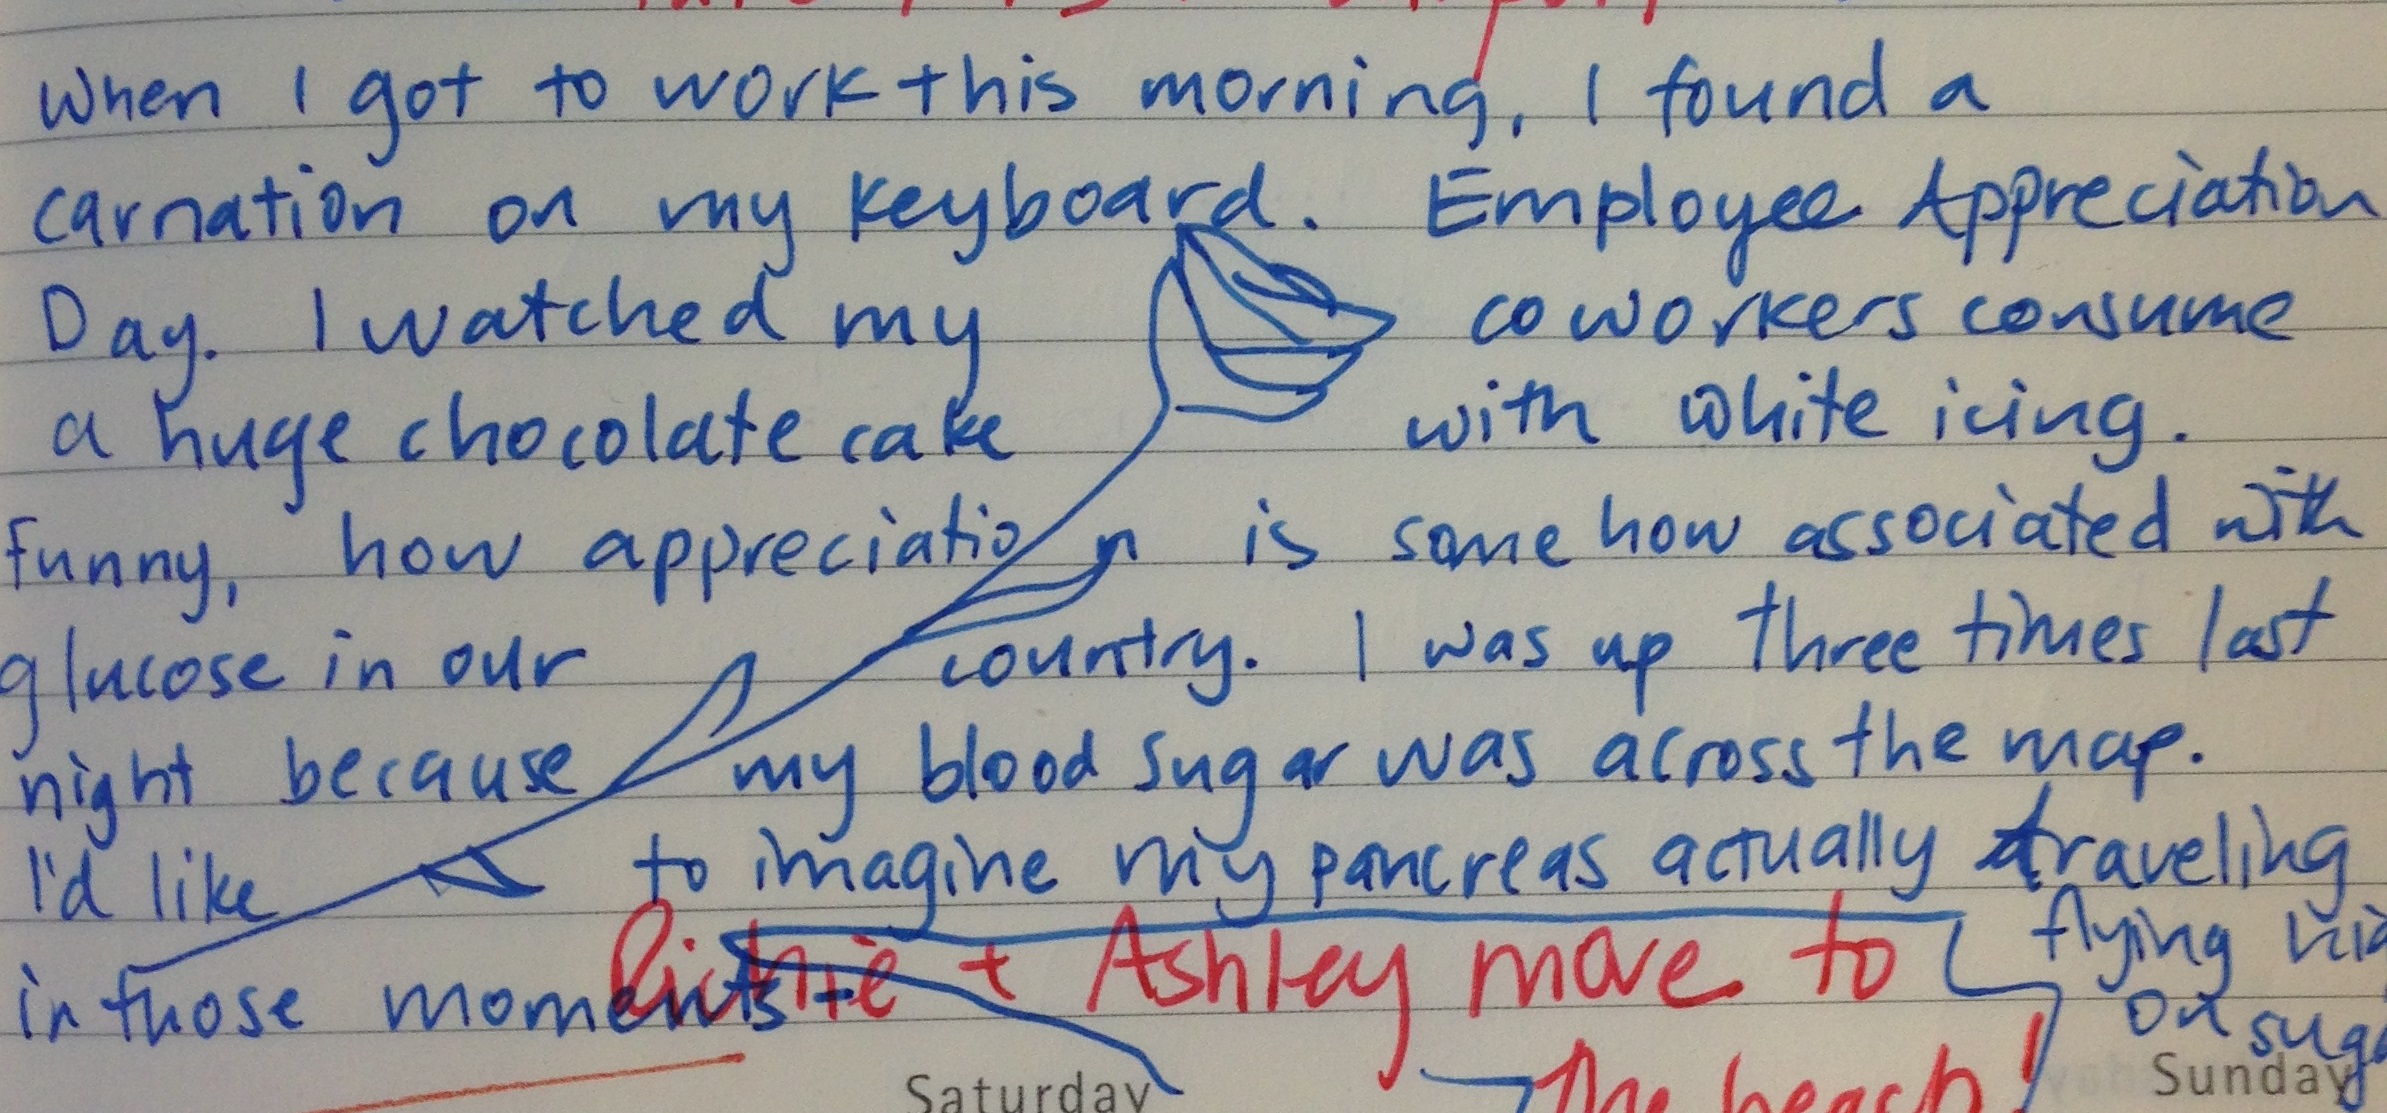 When I got to work this morning, I found a
carnation on my keyboard. Employee Appreciation
Day. I watched my coworkers consume
a huge chocolate cake with white icing.
Funny, how appreciation is somehow associated with
glucose in our country. I was up three times last
night because my blood sugar was across the map.
I'd like to imagine my pancreas actually traveling
in those moments - flying
on
Richie + Ashley move to
The beach!
Saturday
Sunday